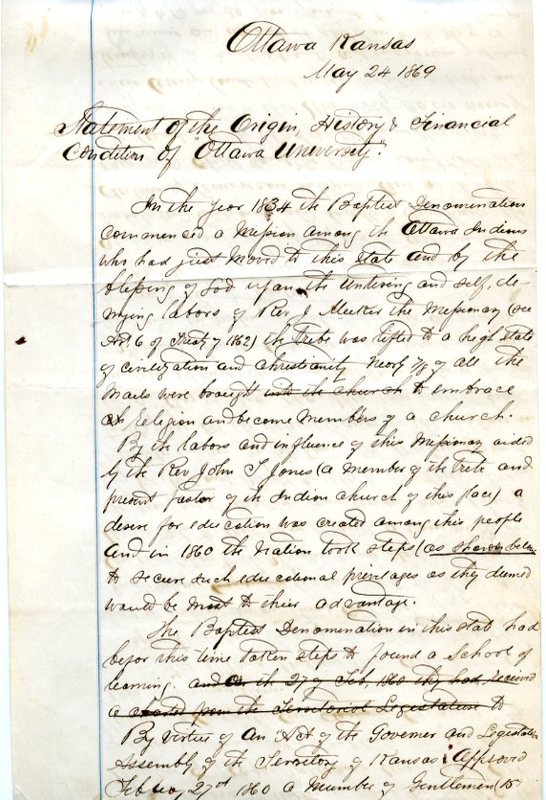 Ottawa Kansas
May 24 1869
Statment of the Origin, History & Financial
Condition of "Ottawa University".
In the year 1834 the Baptist Denomination
commenced a Mission among the Ottawa Indians
who had just moved to this State and by the
blessing of God upon the untiring and self, de-
nying labors of Rev J Meeker the Missionary (see
Art 6 of Treaty 1862) the Tribe was lifted to a high State
of civilization and christianity Nearly 7/8 of all the
were brought into the church to embrace
Religion and become Members of a church.
By the labors and influence of this Missionary aided
by the Rev John T Jones (a Member of the Tribe and
present pastor of the Indian Church of this place) a
desire for education was created among this people
and in 1860 the Nation took steps (as shown below
to secure such educational privileges as they deemed
would be most to thier advantage.
The Baptist Denomination in this stat had
befor this time taken steps to found a School of
learning. and on the 27 of Feb, 1860 they had recieved
a charter from the Territorial Legislature to
By virtue of An Act of the Governor and Legislative
Assembly of the Territory of Kansas Approved
27th 1860 a Number of Gentlemen (15